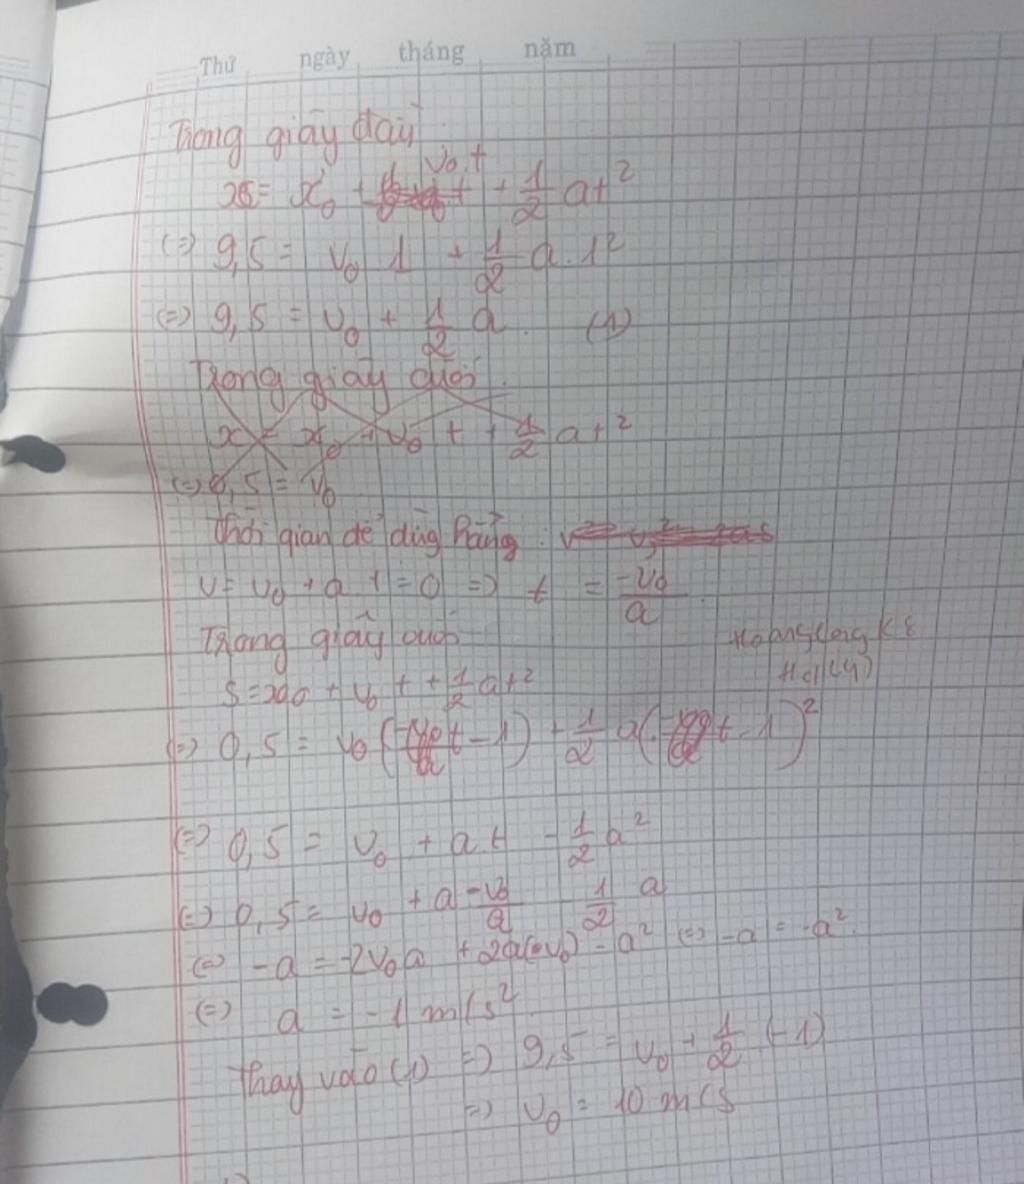 Thứ ngày tháng năm
Trong giây đầu
x = x₀ + v₀.t + 1/2 at²
(=) 9,5 = v₀ 1 + 1/2 a.1²
(=) 9,5 = v₀ + 1/2 a. (1)
Trong giây cuối.
x = x₀ + v₀ t + 1/2 at²
(=) 0,5 = v₀
Thời gian để dừng hẳng :
v = v₀ + a t = 0 => t = -v₀/a
Trong giây cuối
s = x₀ + v₀ t + 1/2 at²
(=) 0,5 = v₀ (t - 1) + 1/2 a(t - 1)²
(=) 0,5 = v₀ + at - 1/2 a²
(=) 0,5 = v₀ + a -v₀/a 1/2 a
(=) -a = -2v₀a + 2a(-v₀) - a² (=) -a = -a².
(=) a = -1 m/s²
Thay vào (1) => 9,5 = v₀ + 1/2 (-1)
=> v₀ = 10 m/s